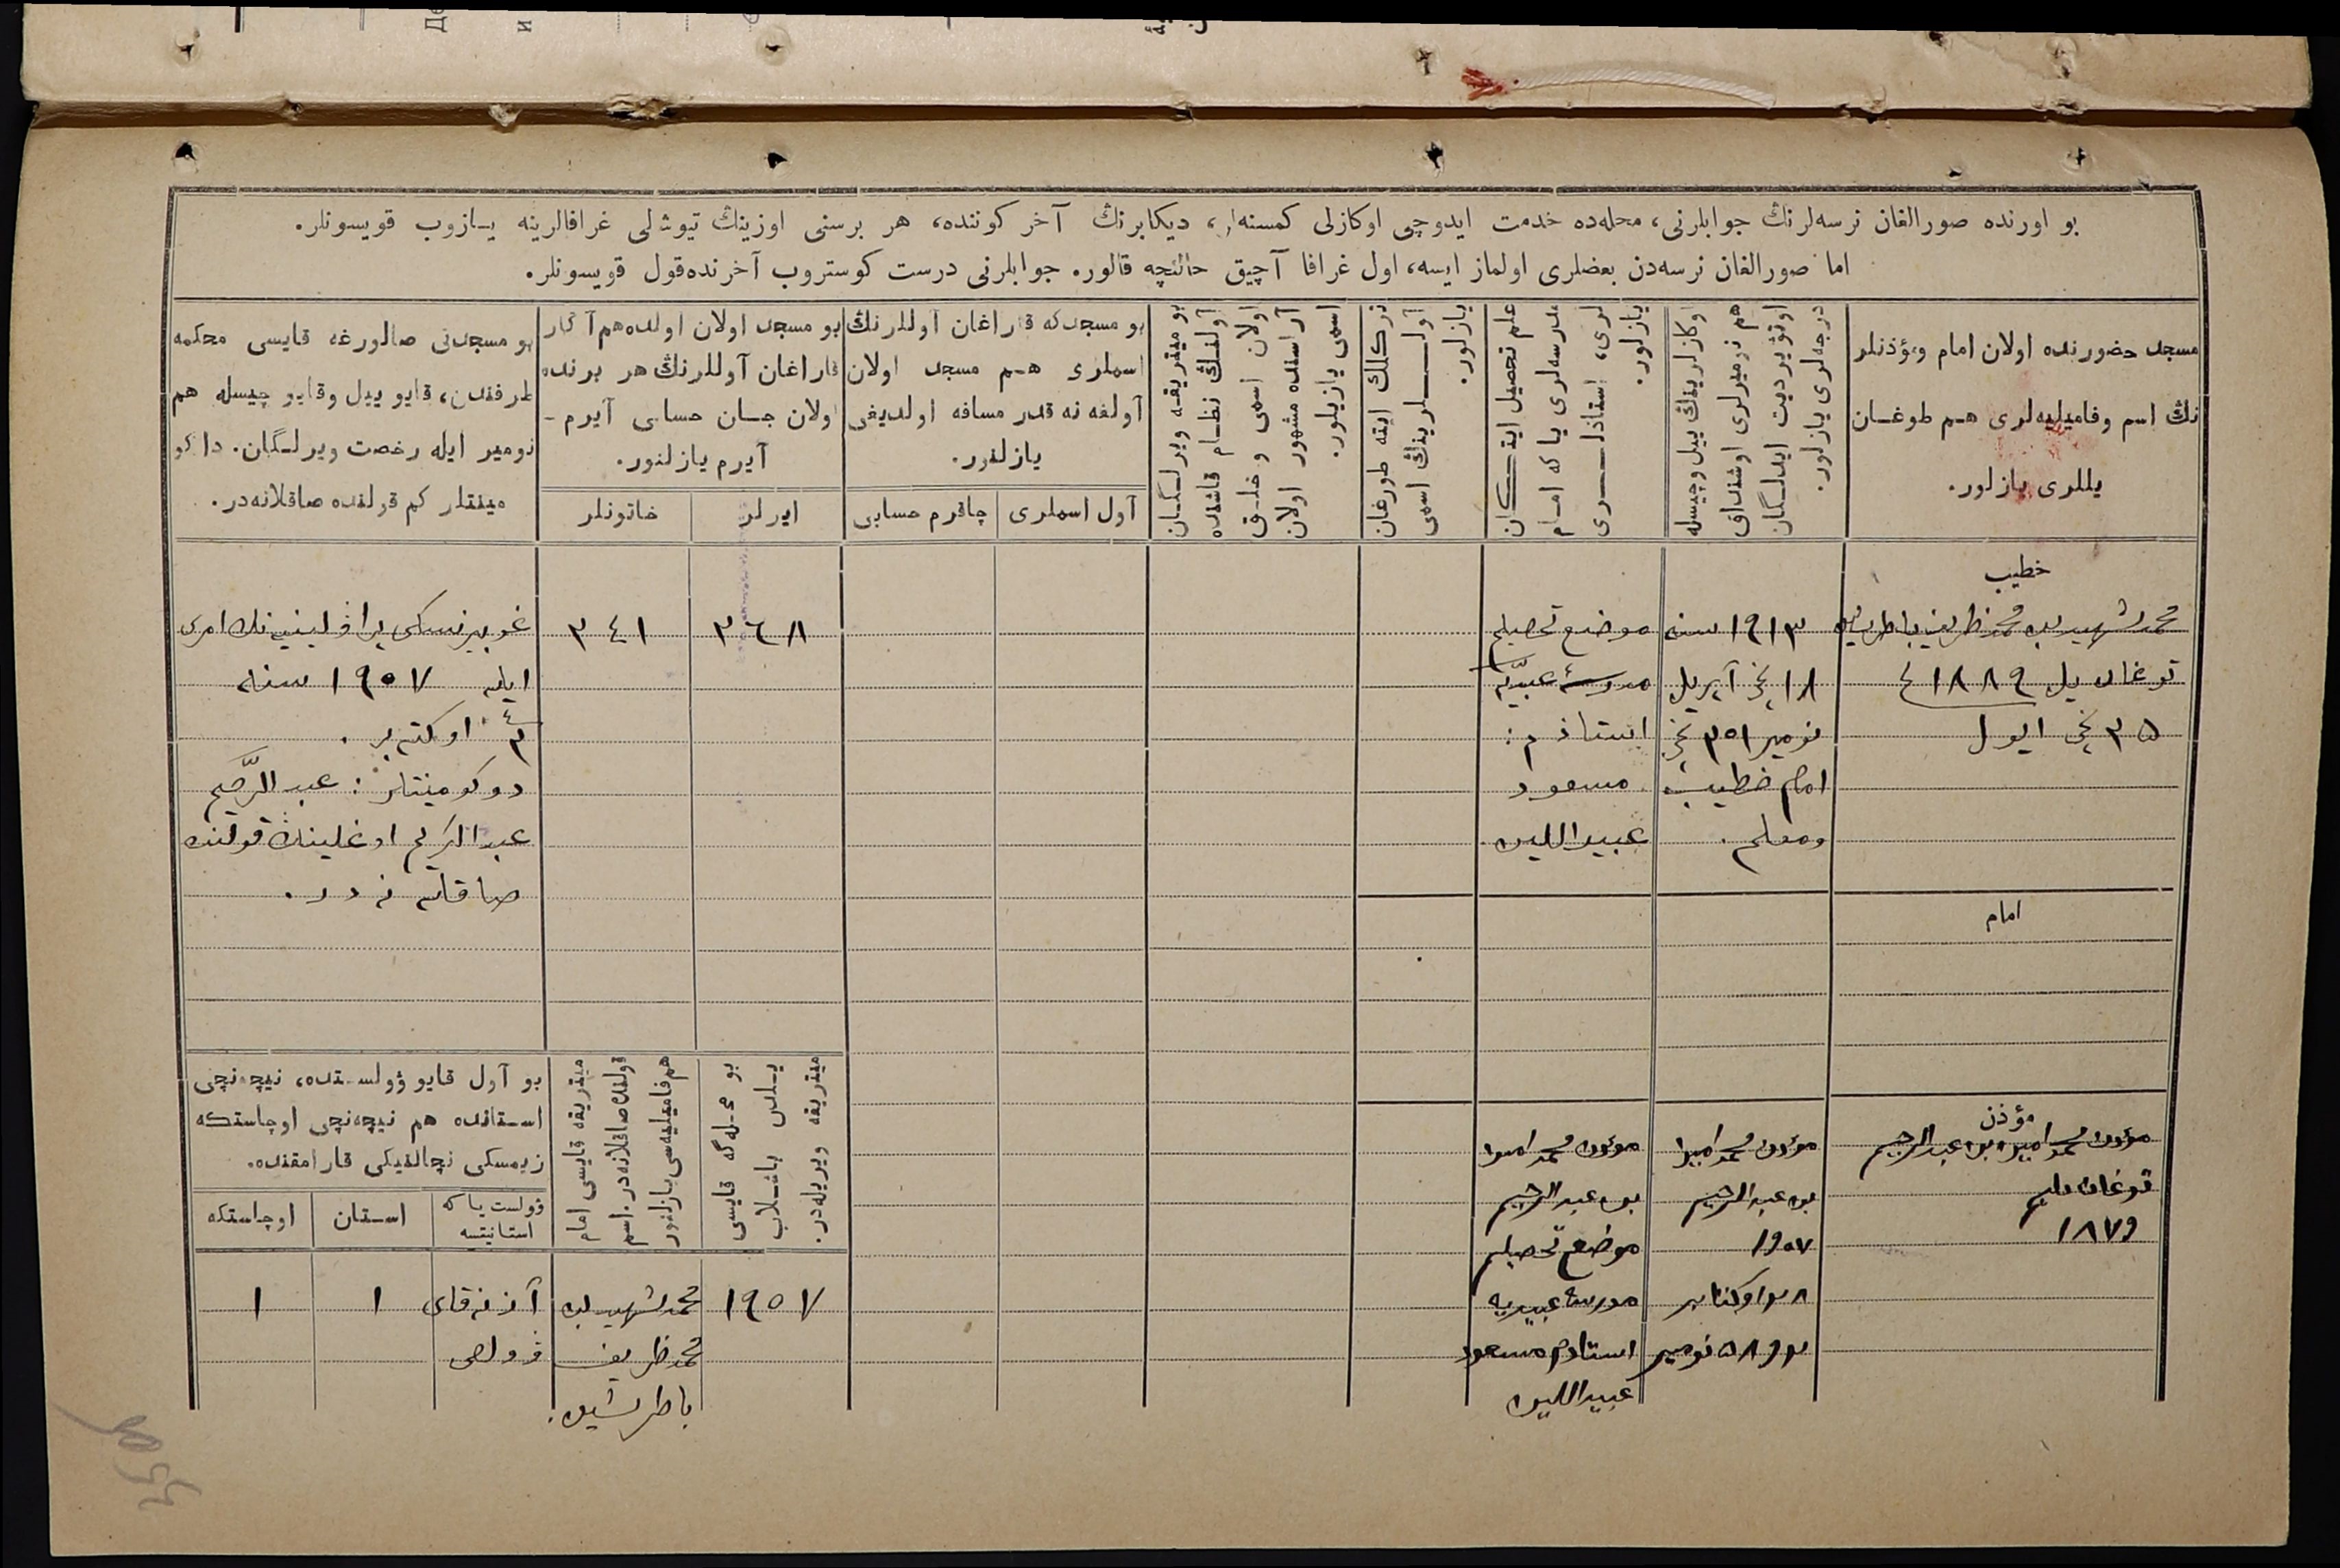 بو اورنده صورالغان نرسه‌لرنڭ جوابلرنی، محله‌ده خدمت ایدوچی اوکازلی کمسنه‌لر، دیکابرنڭ آخر کوننده، هر برسنی اوزینڭ تیوشلی غرافالرینه یازوب قویسونلر.
اما صورالغان نرسه‌دن بعضلری اولماز ایسه، اول غرافا آچیق حالنچه قالور. جوابلرنی درست کوستروب آخرنده قول قویسونلر.
مسجد حضورنده اولان امام ومؤذنلر
نڭ اسم وفامیلیه‌لری هم طوغان
یللری یازلور.
اوکازلرینڭ ییل وچیسله
هم نومیرلری اوشنداق
اوتوېردیت ایدلگان
درجه‌لری یازلور.
علم تحصیل ایتکان
مدرسه‌لری یا که امام
لری، استاذلری
یازلور.
ترکلک ایته طورغان
آوللرینڭ اسمی
یازلور.
بو میتریقه ویرلگان
آولنڭ نظام قاشنده
اولان اسمی و خلق
آراسنده مشهور اولان
اسمی یازیلور.
بو مسجدکه قاراغان آوللرنڭ
اسملری هم مسجد اولان
آولغه نه قدر مسافه اولدیغی
یازلنور.
آول اسملری
چاقرم حسابی
بو مسجد اولان اولده هم آڭار
قاراغان آوللرنڭ هر برنده
اولان جان حسابی آیرم -
آیرم یازلنور.
ایرلر
خاتونلر
بو مسجدنی صالورغه قایسی محکمه
طرفندن، قایو ییل وقایو چیسله هم
نومیر ایله رخصت ویرلگان. داکو
مینتلر کم قولنده صاقلانه‌در.
خطیب
محمدشهید بن محمدظریف باطرشین
توغان یل ١٨٨٩
٢٥ نچی ایول
١٩١٣ سنه
١٨ نچی آپریل
نومیر ٣٥١ نچی
امام خطیب
ومعلم.
موضع تحصیلم
مدرسۀ عبیدیّه
استاذم:
مسعود
عبیداللین
٣٦٨
٣٤١
غوبیرنسکی پراڤلینیه‌نڭ امری
ایله ١٩٠٧ سنه
٤ اوکتەبر.
دوکومینتلر: عبدالرّحیم
عبدالکریم اوغلینڭ قولنده
صاقلانه در.
امام
مؤذن
مؤذن محمد امین بن عبدالرحیم
توغان یلم
١٨٧٩
مؤذن محمد امین
بن عبدالرحیم
١٩٠٧
٢٨ اوکتابر
نومیر
مؤذن محمد امین
بن عبدالرحیم
موضع تحصیلم
مدرسۀ عبیدیه
استاذم مسعود
عبیداللین
بو محله‌گه قایسی
یلدن باشلاب
میتریقه ویریله‌در.
میتریقه قایسی امام
قولنده صاقلانه‌در. اسم
هم فامیلیه‌سی یازلنور
بو آول قایو ؤولستده، نیچه‌نچی
استانده هم نیچه‌نچی اوچاستکه
زیمسکی نچالنیکی قارامقنده.
ؤولست یا که
استانیتسه
استان
اوچاستکه
١٩٠٧
محمدشهید بن
محمدظریف
باطرشین.
ؤولصی
١
١